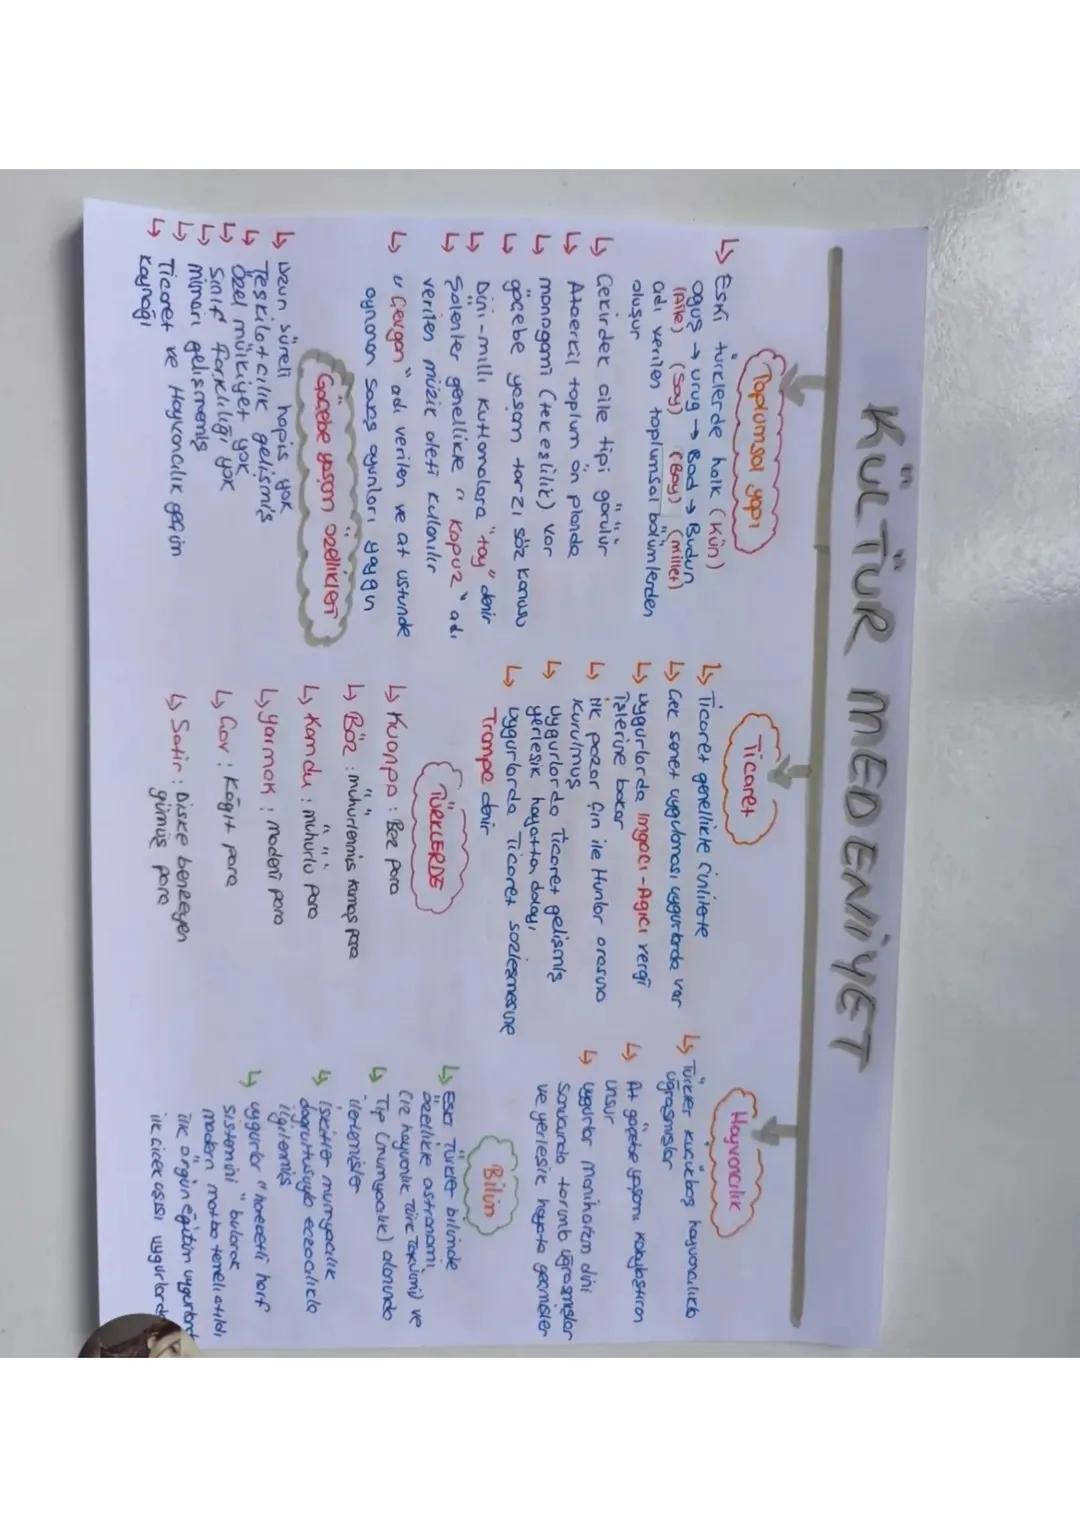 KÜLTÜR MEDENİYET
Toplumsal yapı
↳ Eski türklerde halk (Kün)
oguş → urug → Bod → Budun
(Aile) (Soy) (Boy) (millet)
adı verilen toplumsal bölümlerden
oluşur
↳ Çekirdek aile tipi görülür
↳ Ataerkil toplum ön planda
↳ monogami (tek eşlilik) var
↳ göçebe yaşam tarzı söz konusu
↳ Dini-milli kutlamalara "toy" denir
↳ Şölenler genellikle "Kopuz" adı
verilen müzik aleti kullanılır
↳ "Çevgan" adı verilen ve at üstünde
oynanan savaş oyunları yaygın
Göçebe yaşam özellikleri
↳ Uzun süreli hapis yok
↳ Teşkilatcılık gelişmiş
↳ Özel mülkiyet yok
↳ Sınıf farklılığı yok
↳ mimari gelişmemiş
↳ Ticaret ve Hayvancılık geçim
kaynağı
Ticaret
↳ Ticaret genellikle Çinlilerle
↳ Çek senet uygulaması uygurlarda var
↳ uygurlarda Imgacı-Agıcı vergi
işlerine bakar
↳ ilk pazar Çin ile Hunlar arasına
kurulmuş
↳ uygurlarda Ticaret gelişmiş
yerleşik hayattan dolayı
↳ uygurlarda Ticaret sözleşmesine
Trampe denir
TÜRKLERDE
↳ Kuanpo : Bez para
↳ Böz : mühürlenmiş kumaş para
↳ Kamdu : mühürlü para
↳ yarmak : madeni para
↳ Çav : Kâğıt para
↳ Satir : Diske benzeyen
gümüş para
Hayvancılık
↳ Türkler küçükbaş hayvancılıkla
uğraşmışlar
↳ At göçebe yaşamı kolaylaştıran
unsur
↳ uygurlar maniheizm dini
sonucunda tarımla uğraşmışlar
ve yerleşik hayata geçmişler
Bilim
↳ Eski Türkler bilimde
özellikle astronomi
(12 hayvanlık Türk Takvimi) ve
↳ Tıp (mumyacılık) alanında
ilerlemişler
↳ iskitler mumyacılık
doğrultusuyla eczacılıkla
ilgilenmiş
↳ uygurlar "hareketli harf
sistemini" bularak
modern matbaa temeli atıldı
ilk örgün eğitim uygurlard
ilk çiçek aşısı uygurlarda